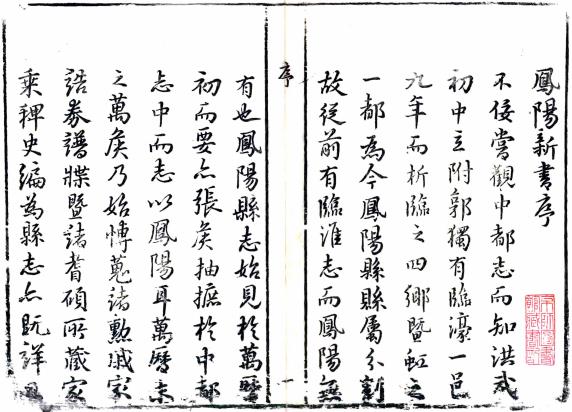 鳳陽新書序
不佞嘗觀中都志而知洪武
初中立附郭獨有臨濠一邑
九年而析臨之四鄉暨虹之
一都為今鳳陽縣縣屬分
故從前有臨淮志而鳳陽無
序
一
有也鳳陽縣志始見於萬曆
初而要亦張矦抽摭於中都
志中而志以鳳陽耳萬曆末
之萬矦乃始博蒐諸勲戚家
誥券譜牒暨諸耆碩所藏家
乘稗史編為縣志亦既詳且